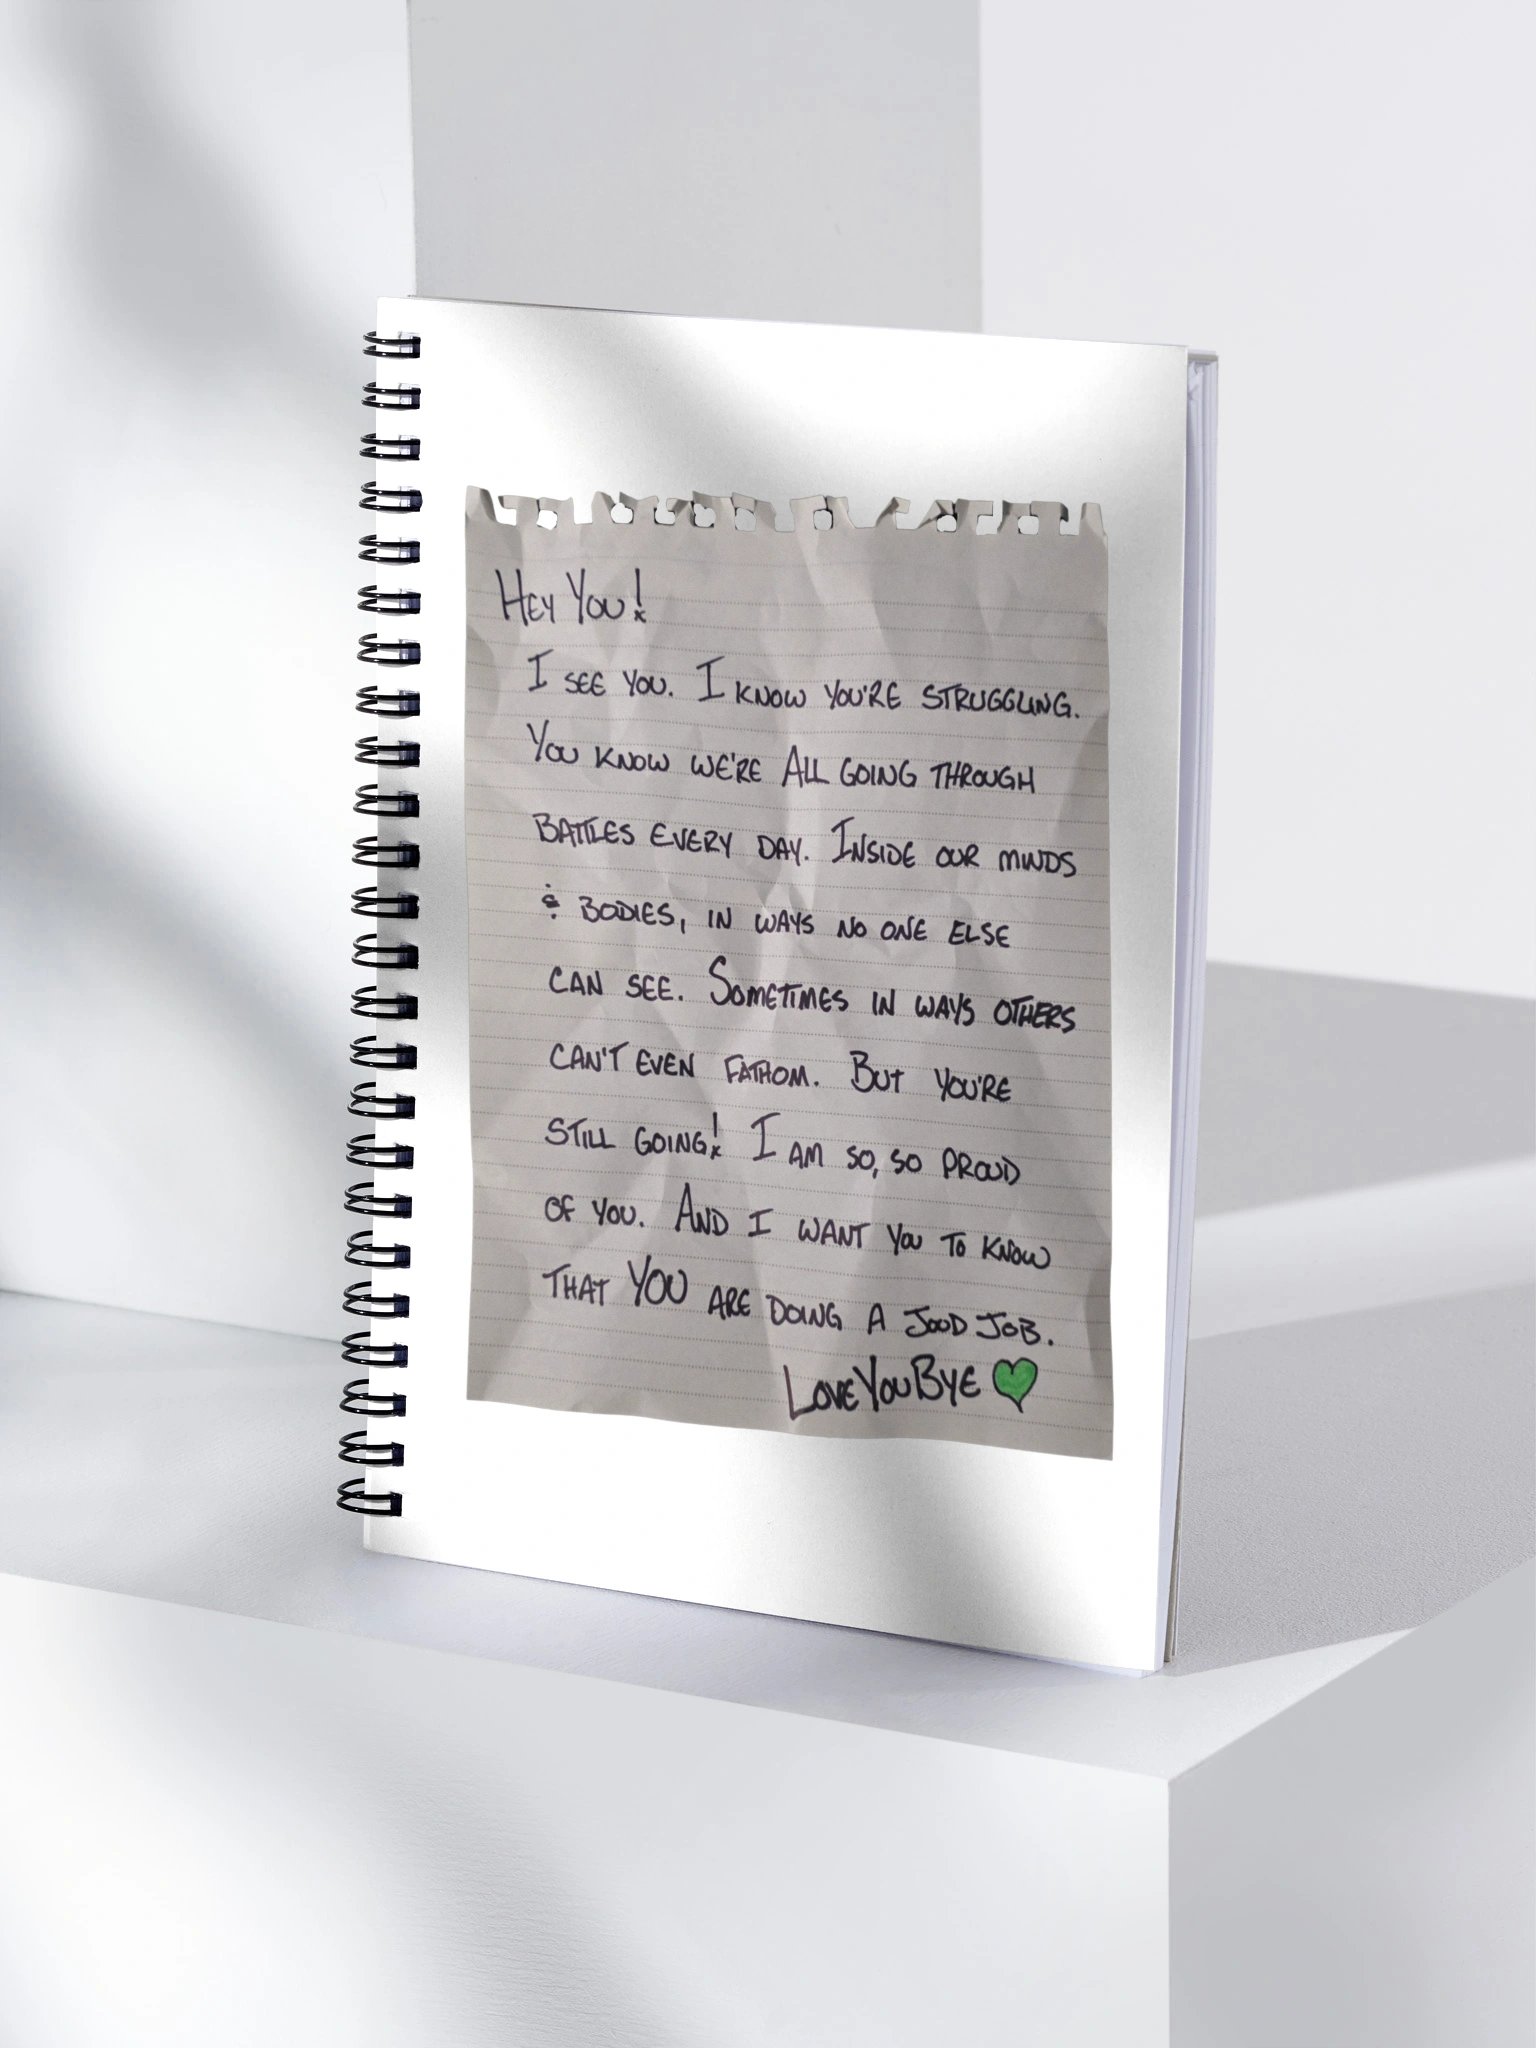 Hey You!
I see you. I know you're struggling.
You know we're All going through
battles every day. Inside our minds
& bodies, in ways no one else
can see. Sometimes in ways others
can't even fathom. But you're
still going! I am so, so proud
of you. And I want you to know
that YOU are doing a good job.
LoveYouBye